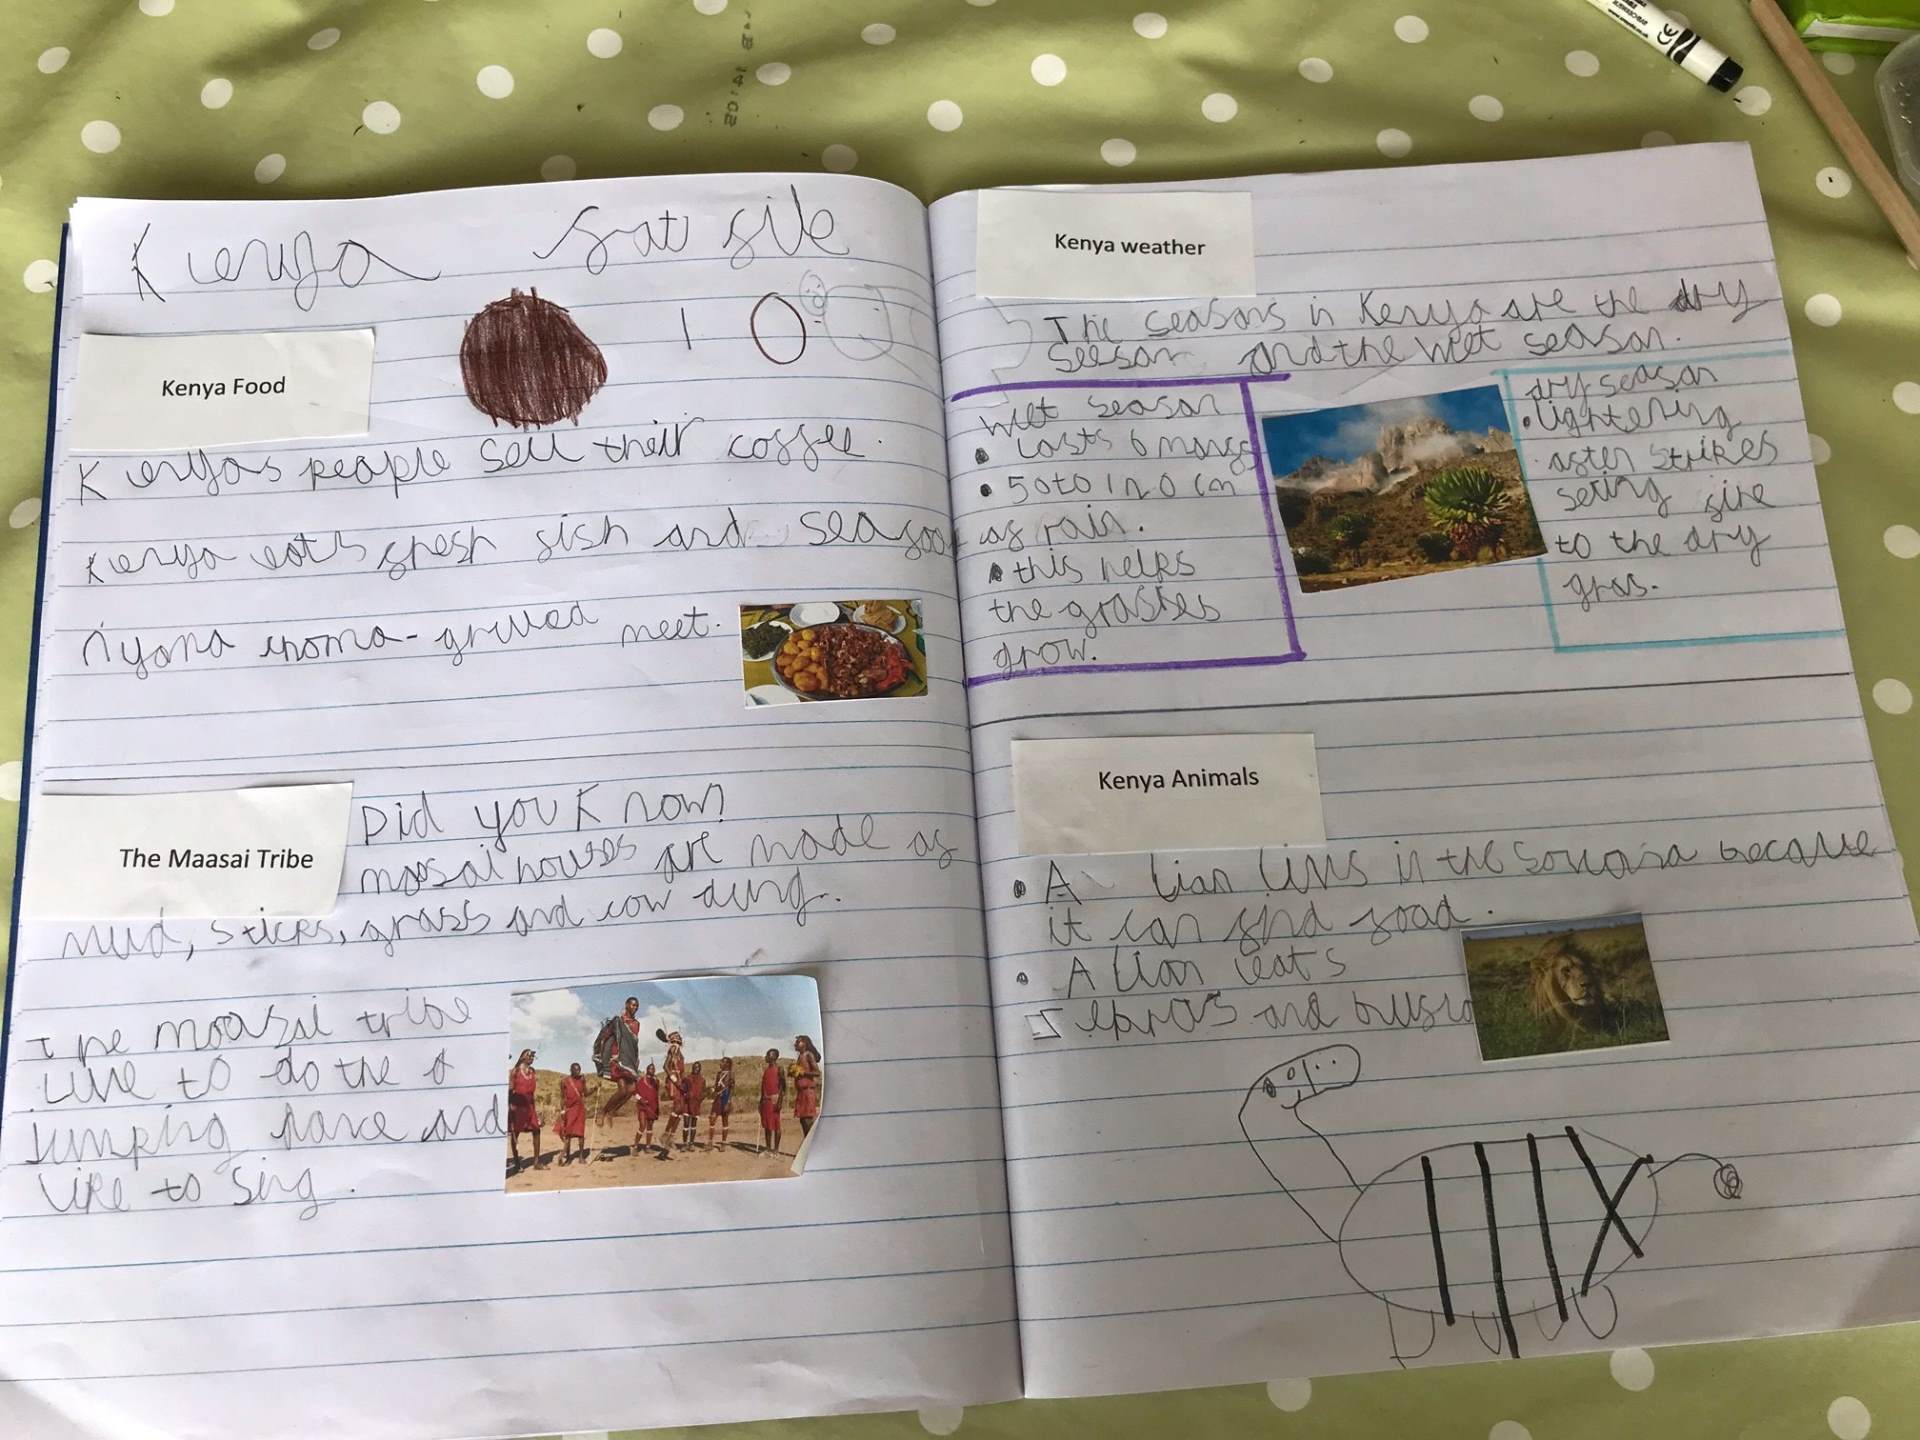 Kenya fat file
Kenya Food
Kenyas people sell their coffee.
Kenya eats fresh fish and seafood
Nyama choma - grilled meet.
The Maasai Tribe
Did you know?
maasai houses are made of
mud, sticks, grass and cow dung.
The maasai tribe
like to do the
jumping dance and
like to sing.
Kenya weather
The seasons in Kenya are the dry
seeson and the wet season.
wet season
• lasts 6 mangs
• 50 to 120 cm
of rain.
• this helps
the grasses
grow.
dry season
• lightening
often strikes
seting fire
to the dry
gras.
Kenya Animals
• A lion lives in the because
it can find food.
• A lion eats
zebras and